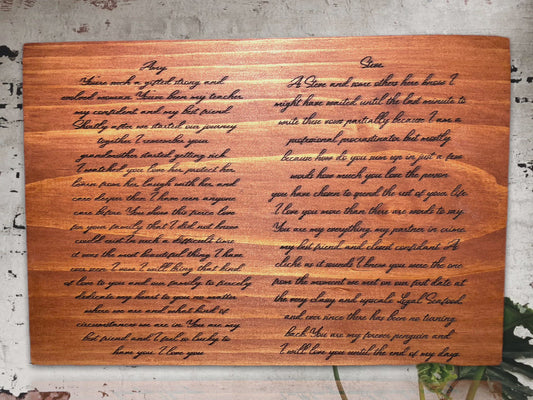 Amy
You're such a gifted strong and
evolved woman. You've been my teacher
my confidant and my best friend
Shortly after we started our journey
together I remember your
grandmother started getting sick
I watched you love her protect her
learn from her laugh with her and
care deeper than I have seen anyone
care before You show this fierce love
for your family that I did not know
could exist In such a difficult time
it was the most beautiful thing I have
ever seen I vow I will bring that kind
of love to you and our family to fiercely
dedicate my heart to you no matter
where we are and what kind of
circumstances we are in You are my
best friend and I feel so lucky to
have you I love you
Steve
A Steve and some others here know I
might have waited until the last minute to
write these vows partially because I am a
professional procrastinator but mostly
because how do you sum up in just a few
words how much you love the person
you have chosen to spend the rest of your life
I love you more than there are words to say
You are my everything my partner in crime
my best friend and closest confidant As
cliche as it sounds I knew you were the one
from the moment we met on our first date at
the very classy and upscale Legal Seafood
and ever since there has been no turning
back You are my forever penguin and
I will love you until the end of my days